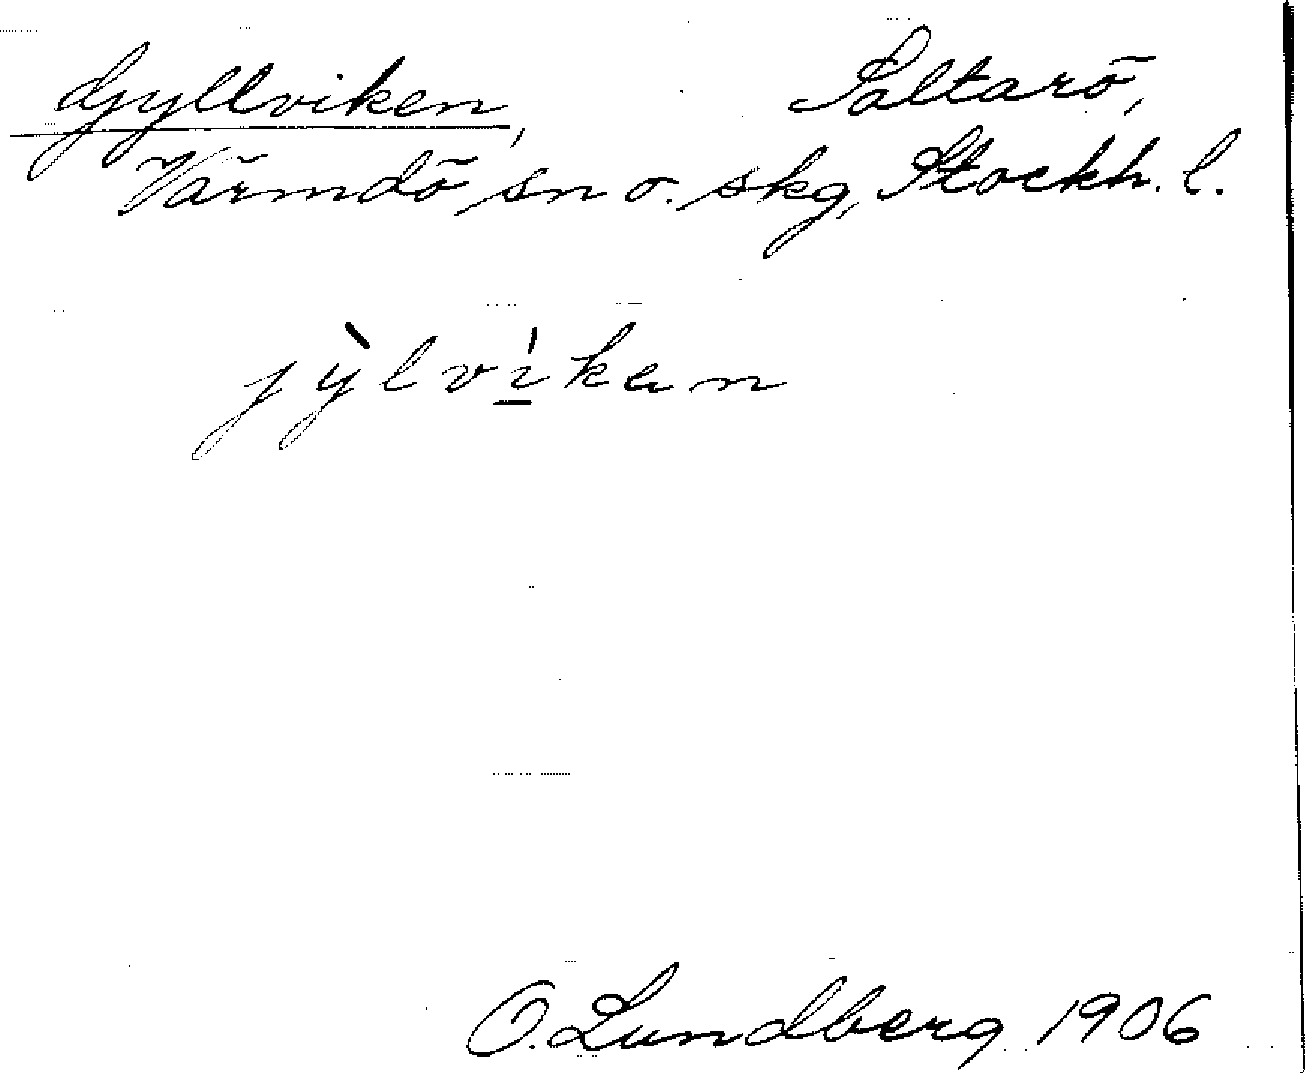 Gyllviken, Saltarö,
Värmdö sn o. skg, Stockh. l.
jỳlvíkan
O. Lundberg 1906